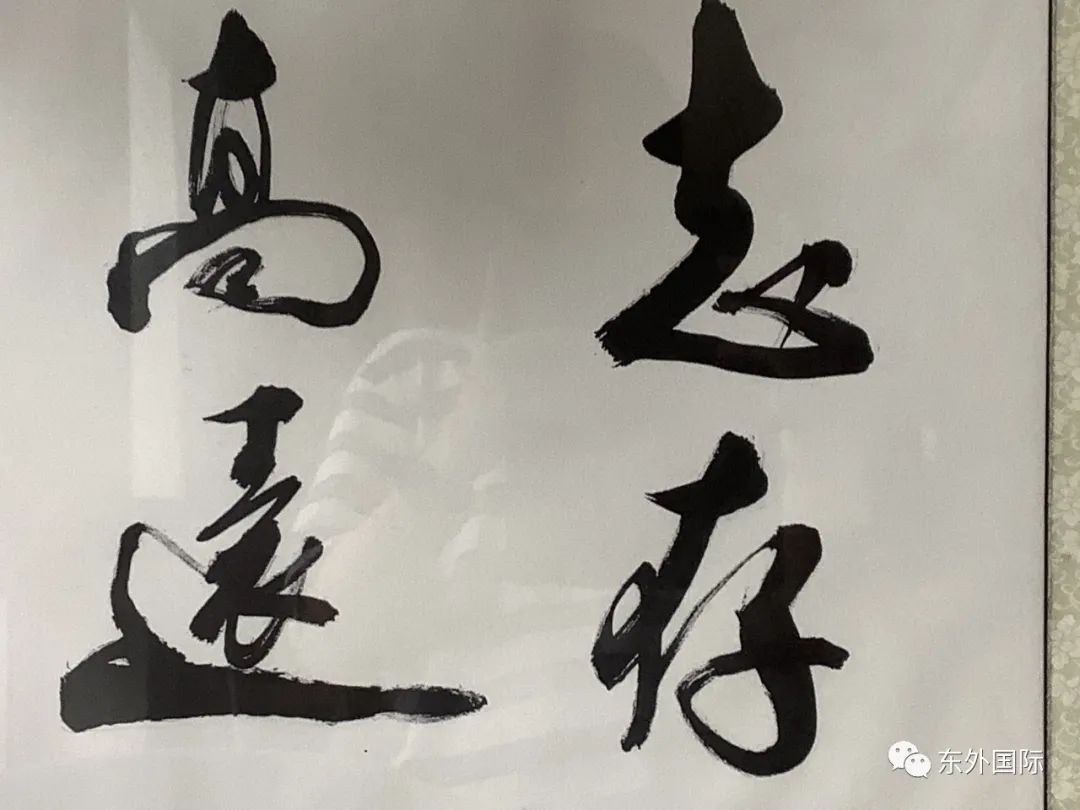 志存
高遠
东外国际